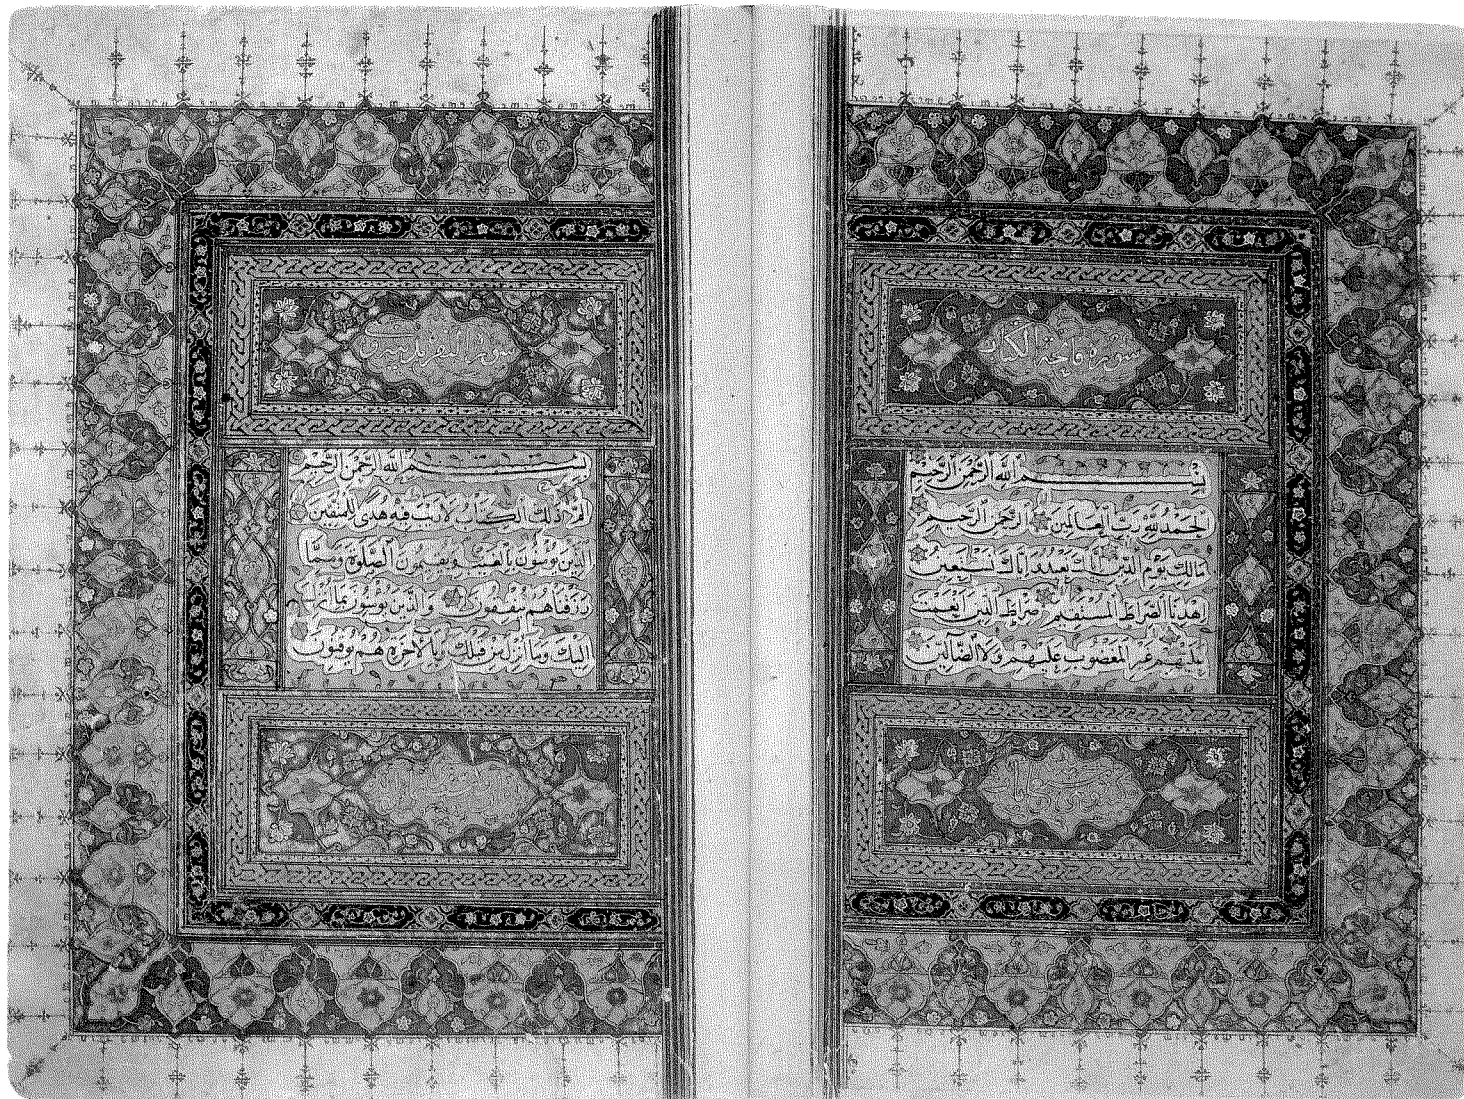 سورة فاتحة الكتاب
بسم الله الرحمن الرحيم
الحمد لله رب العالمين الرحمن الرحيم
مالك يوم الدين اياك نعبد و اياك نستعين
اهدنا الصراط المستقيم صراط الذين انعمت
عليهم غير المغضوب عليهم ولا الضالين
سورة البقرة
بسم الله الرحمن الرحيم
الم ذلك الكتاب لا ريب فيه هدى للمتقين
الذين يؤمنون بالغيب ويقيمون الصلوة ومما
رزقناهم ينفقون والذين يؤمنون بما انزل
اليك وما انزل من قبلك وبالاخرة هم يوقنون